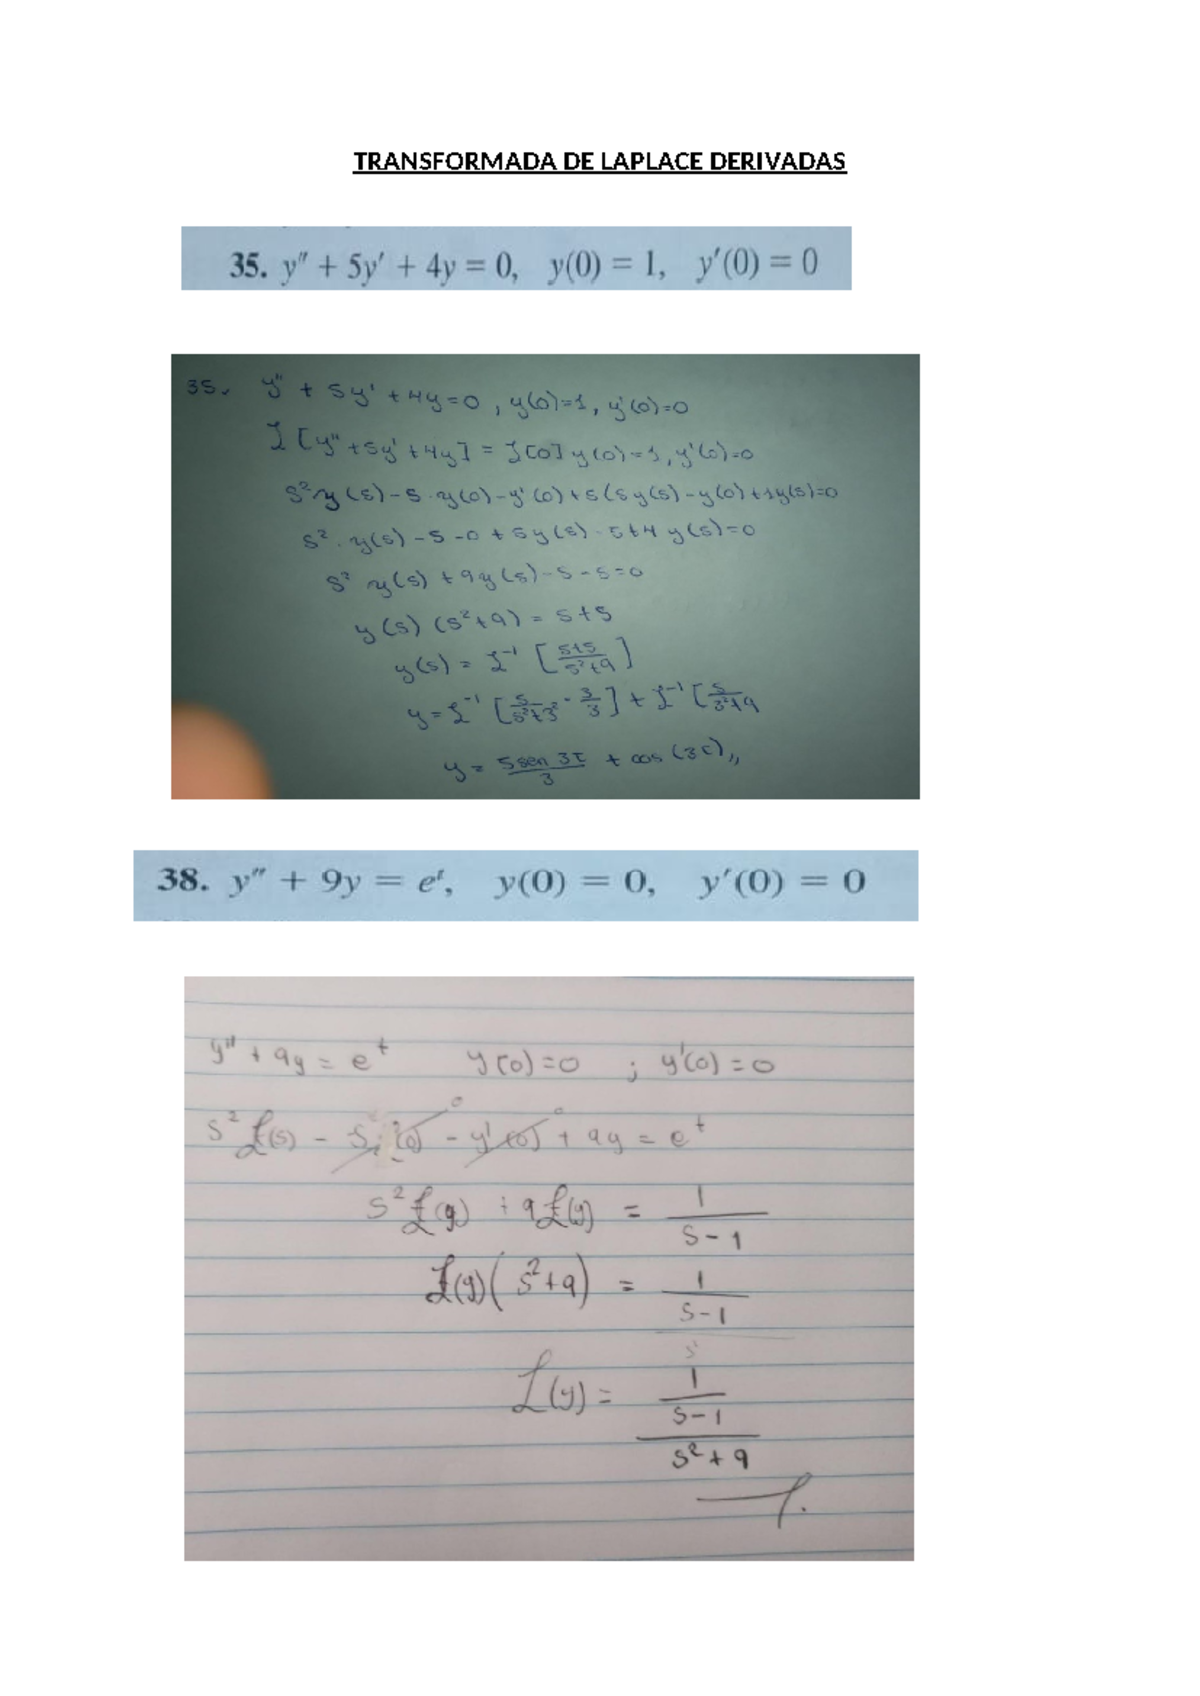 TRANSFORMADA DE LAPLACE DERIVADAS
35. y" + 5y' + 4y = 0, y(0) = 1, y'(0) = 0
35. y" + 5y' + 4y=0, y(0)=1, y'(0)=0
ℒ[y"+5y'+4y] = ℒ[0] y(0)=1, y'(0)=0
s² y(s) - s·y(0) - y'(0) + 5(sy(s) - y(0) + 4y(s)=0
s². y(s) - s - 0 + 5y(s) - 5+4 y(s)=0
s² y(s) + 9y(s) - s - 5=0
y(s) (s²+9) = s+5
y(s) = ℒ⁻¹ [s+5/s²+9]
y=ℒ⁻¹ [5/s²+3² · 3/3] + ℒ⁻¹ [s/s²+9
y = 5sen 3t/3 + cos (3t),,
38. y" + 9y = eᵗ, y(0) = 0, y'(0) = 0
y" + 9y = eᵗ y(0)=0 ; y'(0) = 0
s² ℒ(s) - s (0) - y'(0) + 9y = eᵗ
s² ℒ(y) + 9ℒ(y) = 1/s-1
ℒ(y)(s²+9) = 1/s-1
ℒ(y) = 1/s-1/s²+9